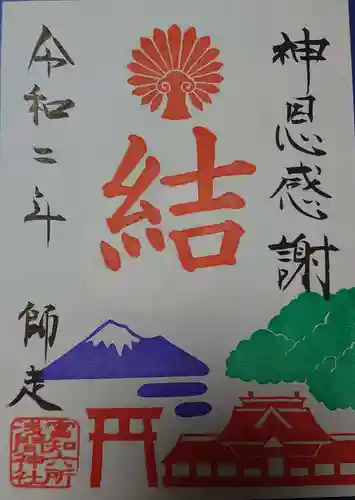 神恩感謝
結
令和二年
師走
富知六所
浅間神社